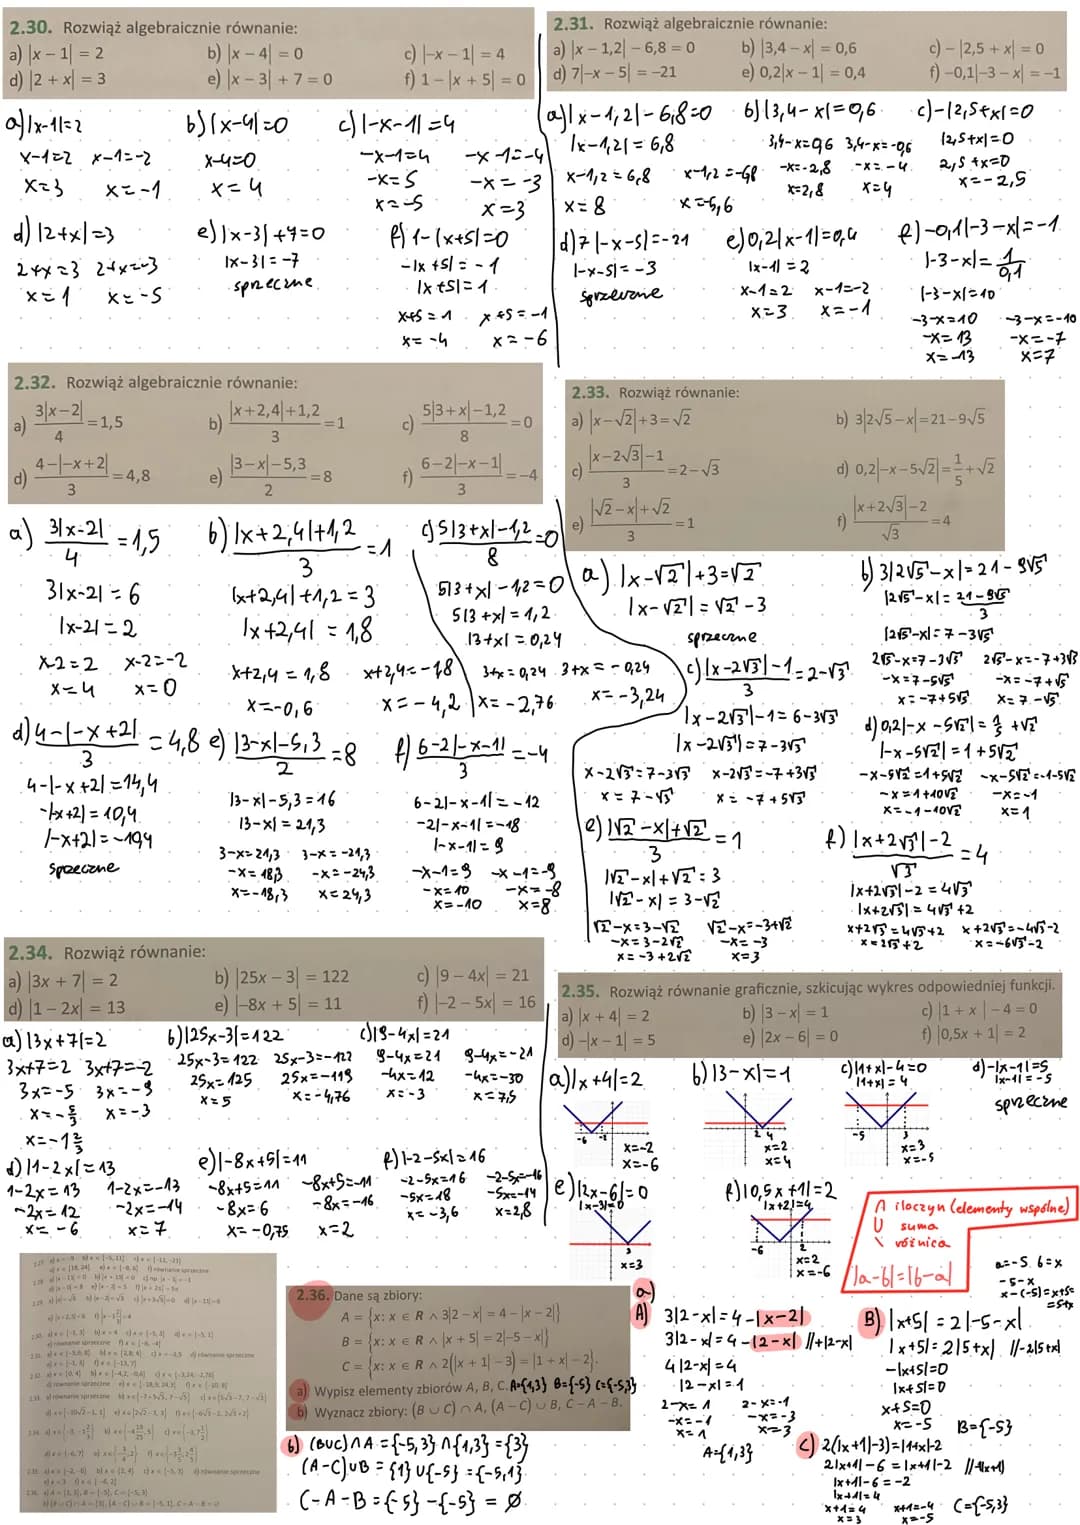 2.30. Rozwiąż algebraicznie równanie:
a) |x − 1| = 2 b) |x − 4| = 0 c) |−x − 1| = 4
d) |2 + x| = 3 e) |x − 3| + 7 = 0 f) 1 − |x + 5| = 0
a) |x-1|=2 b) |x-4|=0 c) |-x-1|=4
x-1=2 x-1=-2 x-4=0 -x-1=4 -x-1=-4
x=3 x=-1 x=4 -x=5 -x=-3
x=-5 x=3
d) |2+x|=3 e) |x-3|+7=0 f) 1-|x+5|=0
2+x=3 2+x=-3 |x-3|=-7 -|x+5|=-1
x=1 x=-5 sprzeczne |x+5|=1
x+5=1 x+5=-1
x=-4 x=-6
2.31. Rozwiąż algebraicznie równanie:
a) |x − 1,2| − 6,8 = 0 b) |3,4 − x| = 0,6 c) −|2,5 + x| = 0
d) 7|−x − 5| = −21 e) 0,2|x − 1| = 0,4 f) −0,1|−3 − x| = −1
a) |x-1,2|-6,8=0 b) |3,4-x|=0,6 c) -|2,5+x|=0
|x-1,2|=6,8 3,4-x=0,6 3,4-x=-0,6 |2,5+x|=0
x-1,2=6,8 x-1,2=-6,8 -x=-2,8 -x=-4 2,5+x=0
x=8 x=-5,6 x=2,8 x=4 x=-2,5
d) 7|-x-5|=-21 e) 0,2|x-1|=0,4 f) -0,1|-3-x|=-1
|-x-5|=-3 |x-1|=2 |-3-x|=1/0,1
sprzeczne x-1=2 x-1=-2 |-3-x|=10
x=3 x=-1 -3-x=10 -3-x=-10
-x=13 -x=-7
x=-13 x=7
2.32. Rozwiąż algebraicznie równanie:
a) 3|x−2|/4 = 1,5 b) |x+2,4|+1,2/3 = 1 c) 5|3+x|−1,2/8 = 0
d) 4−|−x+2|/3 = 4,8 e) |3−x|−5,3/2 = 8 f) 6−2|−x−1|/3 = −4
a) 3|x-2|/4 = 1,5 b) |x+2,4|+1,2/3 = 1 c) 5|3+x|-1,2/8 = 0
3|x-2|=6 |x+2,4|+1,2=3 5|3+x|-1,2=0
|x-2|=2 |x+2,4|=1,8 5|3+x|=1,2
|3+x|=0,24
x-2=2 x-2=-2 x+2,4=1,8 x+2,4=-1,8 3+x=0,24 3+x=-0,24
x=4 x=0 x=-0,6 x=-4,2 x=-2,76 x=-3,24
d) 4-|-x+2|/3 = 4,8 e) |3-x|-5,3/2 = 8 f) 6-2|-x-1|/3 = -4
4-|-x+2|=14,4 |3-x|-5,3=16 6-2|-x-1|=-12
-|-x+2|=10,4 |3-x|=21,3 -2|-x-1|=-18
|-x+2|=-10,4 |-x-1|=9
sprzeczne 3-x=21,3 3-x=-21,3 -x-1=9 -x-1=-9
-x=18,3 -x=-24,3 -x=10 -x=-8
x=-18,3 x=24,3 x=-10 x=8
2.33. Rozwiąż równanie:
a) |x−√2|+3=√2 b) 3|2√5−x|=21−9√5
c) |x−2√3|−1/3 = 2−√3 d) 0,2|−x−5√2|=1/5+√2
e) |√2−x|+√2/3 = 1 f) |x+2√3|−2/√3 = 4
a) |x-√2|+3=√2 b) 3|2√5-x|=21-9√5
|x-√2|=√2-3 |2√5-x|=21-9√5/3
sprzeczne |2√5-x|=7-3√5
c) |x-2√3|-1/3 = 2-√3 2√5-x=7-3√5 2√5-x=-7+3√5
-x=7-5√5 -x=-7+√5
x=-7+5√5 x=7-√5
|x-2√3|-1=6-3√3 d) 0,2|-x-5√2|=1/5+√2
|x-2√3|=7-3√3 |-x-5√2|=1+5√2
x-2√3=7-3√3 x-2√3=-7+3√3 -x-5√2=1+5√2 -x-5√2=-1-5√2
x=7-√3 x=-7+5√3 -x=1+10√2 -x=-1
x=-1-10√2 x=1
e) |√2-x|+√2/3 = 1 f) |x+2√3|-2/√3 = 4
|√2-x|+√2=3 |x+2√3|-2=4√3
|√2-x|=3-√2 |x+2√3|=4√3+2
√2-x=3-√2 √2-x=-3+√2 x+2√3=4√3+2 x+2√3=-4√3-2
-x=3-2√2 -x=-3 x=2√3+2 x=-6√3-2
x=-3+2√2 x=3
2.34. Rozwiąż równanie:
a) |3x + 7| = 2 b) |25x − 3| = 122 c) |9 − 4x| = 21
d) |1 − 2x| = 13 e) |−8x + 5| = 11 f) |−2 − 5x| = 16
a) |3x+7|=2 b) |25x-3|=122 c) |9-4x|=21
3x+7=2 3x+7=-2 25x-3=122 25x-3=-122 9-4x=21 9-4x=-21
3x=-5 3x=-9 25x=125 25x=-119 -4x=12 -4x=-30
x=-5/3 x=-3 x=5 x=-4,76 x=-3 x=7,5
x=-1 2/3
d) |1-2x|=13 e) |-8x+5|=11 f) |-2-5x|=16
1-2x=13 1-2x=-13 -8x+5=11 -8x+5=-11 -2-5x=16 -2-5x=-16
-2x=12 -2x=-14 -8x=6 -8x=-16 -5x=18 -5x=-14
x=-6 x=7 x=-0,75 x=2 x=-3,6 x=2,8
2.35. Rozwiąż równanie graficznie, szkicując wykres odpowiedniej funkcji.
a) |x + 4| = 2 b) |3 − x| = 1 c) |1 + x| − 4 = 0
d) −|x − 1| = 5 e) |2x − 6| = 0 f) |0,5x + 1| = 2
a) |x+4|=2 b) |3-x|=1 c) |1+x|-4=0 d) -|x-1|=5
|1+x|=4 |x-1|=-5
sprzeczne
-6 -2 2 4 -5 3
x=-2 x=2 x=3
x=-6 x=4 x=-5
e) |2x-6|=0 f) |0,5x+1|=2
|x-3|=0 |x+2|=4
3 -6 2
x=3 x=2
x=-6
∩ iloczyn (elementy wspólne)
U suma
\ różnica
|a-b|=|b-a|
a=-5 b=x
-5-x
x-(-5)=x+5=
=5+x
2.36. Dane są zbiory:
A = {x: x ∈ R ∧ 3|2 − x| = 4 − |x − 2|}
B = {x: x ∈ R ∧ |x + 5| = 2|−5 − x|}
C = {x: x ∈ R ∧ 2(|x + 1| − 3) = |1 + x| − 2}.
a) Wypisz elementy zbiorów A, B, C. A={1,3} B={-5} C={-5,3}
b) Wyznacz zbiory: (B ∪ C) ∩ A, (A − C) ∪ B, C − A − B.
b) (BUC)∩A={-5,3}∩{1,3}={3}
(A-C)UB={1}U{-5}={-5,1}
C-A-B={-5}-{-5}=Ø
a)
A) 3|2-x|=4-|x-2|
3|2-x|=4-|2-x| //+|2-x|
4|2-x|=4
|2-x|=1
2-x=1 2-x=-1
-x=-1 -x=-3
x=1 x=3
A={1,3}
B) |x+5|=2|-5-x|
|x+5|=2|5+x| //-2|5+x|
-|x+5|=0
|x+5|=0
x+5=0
x=-5 B={-5}
C) 2(|x+1|-3)=|1+x|-2
2|x+1|-6=|x+1|-2 //-|x+1|
|x+1|-6=-2
|x+1|=4
x+1=4 x+1=-4 C={-5,3}
x=3 x=-5